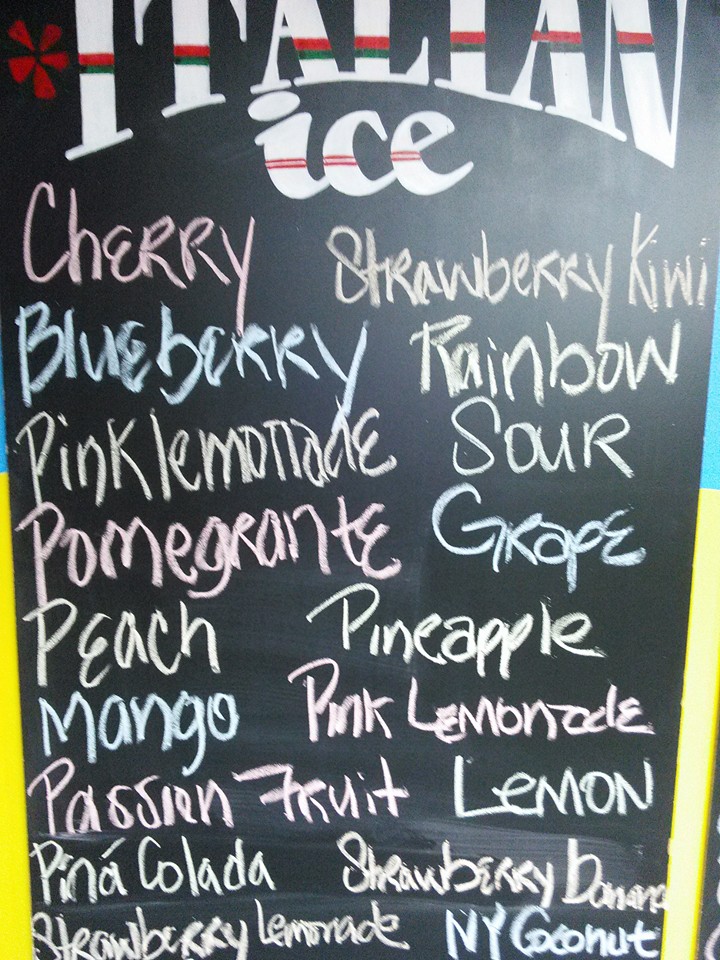 ITALIAN
ice
Cherry Strawberry Kiwi
Blueberry Rainbow
Pink lemonade Sour
Pomegrante Grape
Peach Pineapple
Mango Pink Lemonade
Passion Fruit Lemon
Piná Colada Strawberry banana
Strawberry Lemonade NY Coconut